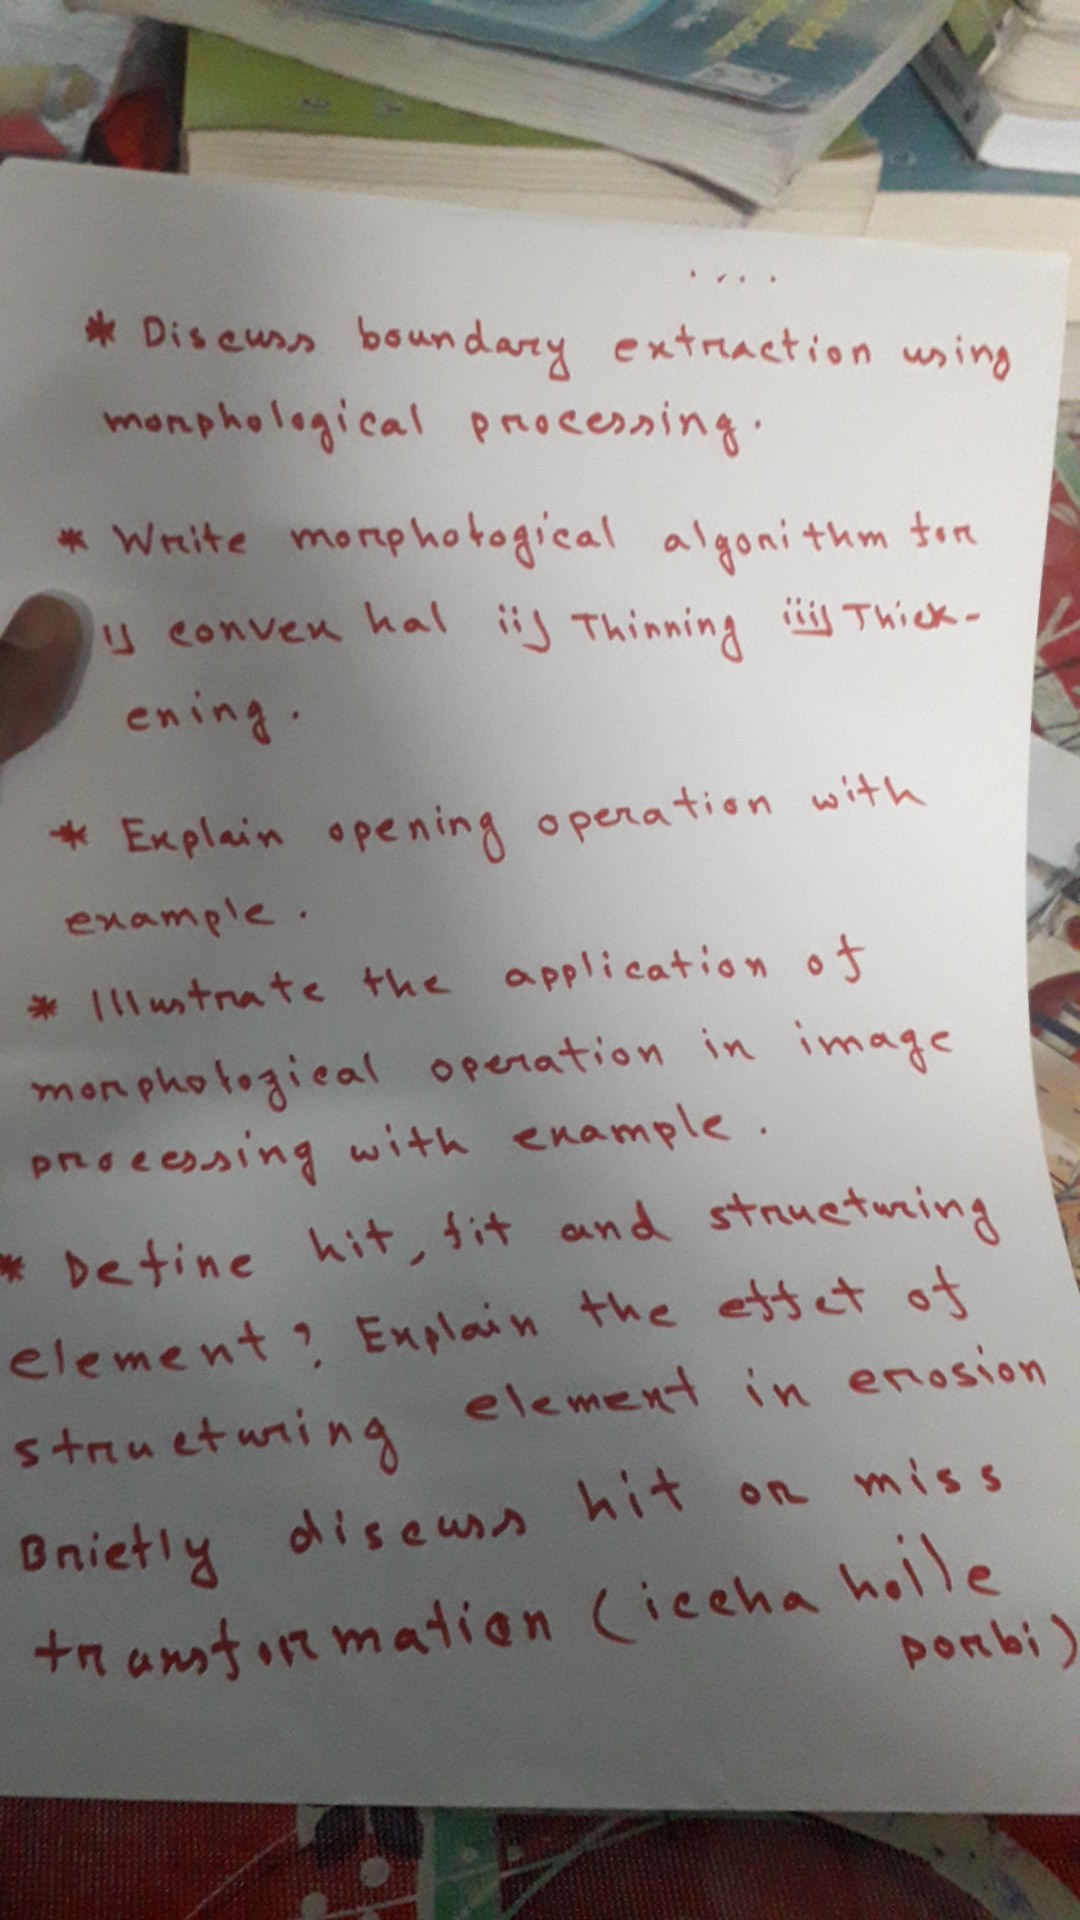 * Discuss boundary extraction using
morphological processing.
* Write morphological algorithm for
i) convex hal ii) Thinning iii) Thick-
ening.
* Explain opening operation with
example.
* Illustrate the application of
morphological operation in image
processing with example.
* Define hit, fit and structuring
element? Explain the effct of
structuring element in erosion
Briefly discuss hit or miss
transformation (iccha holle
porbi)